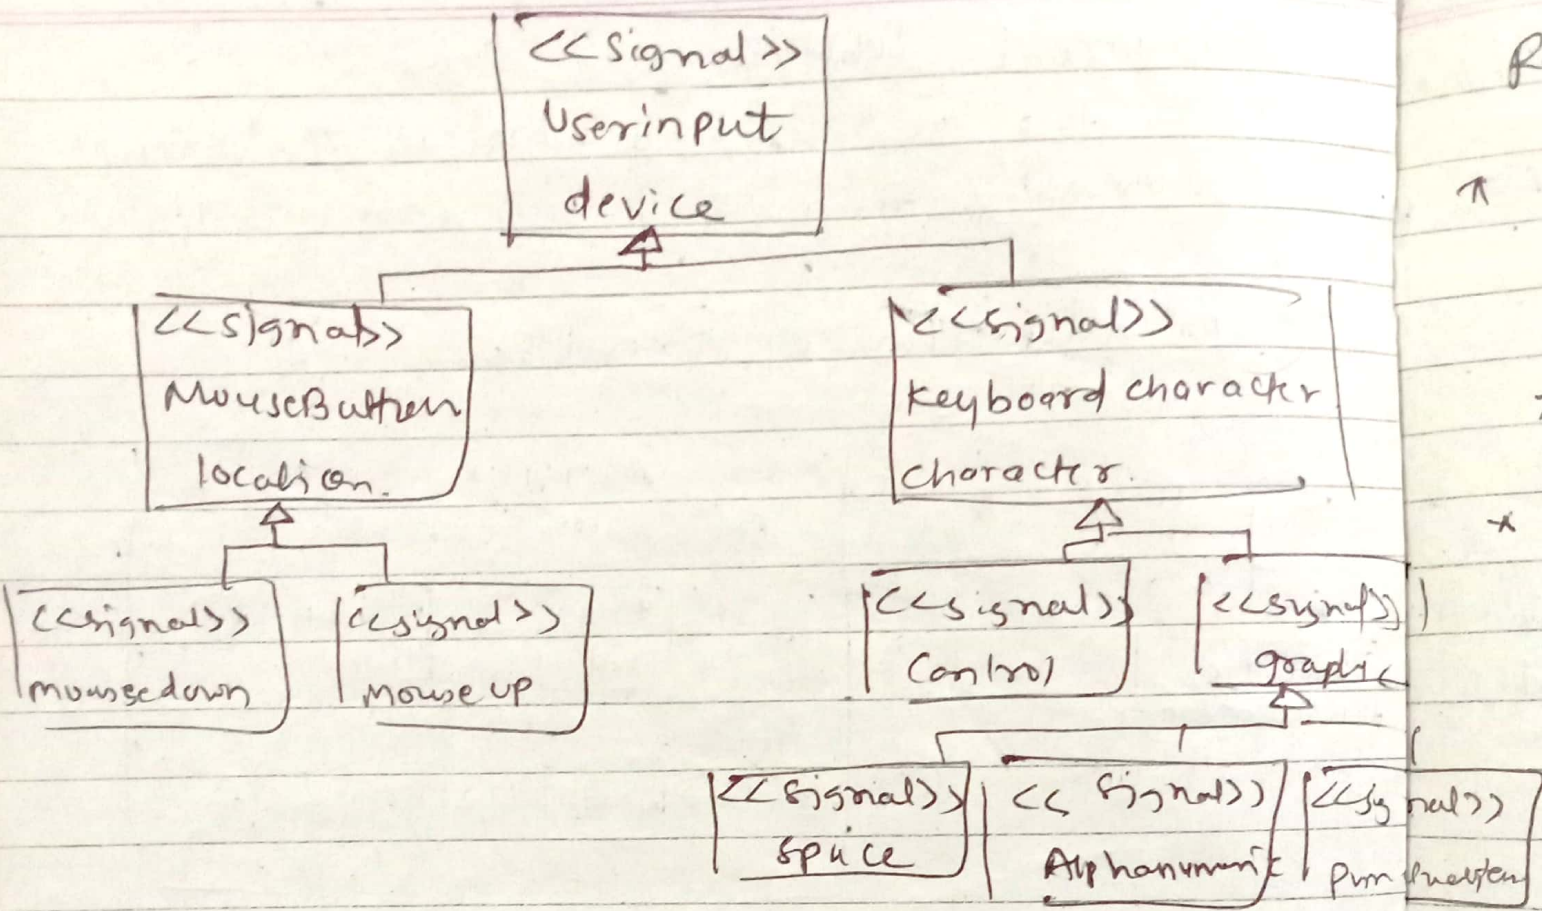 <<signal>>
Userinput
device
<<signal>>
MouseButton
location.
<<signal>>
Keyboard character
character.
<<signal>>
mousedown
<<signal>>
mouse up
<<signal>>
Control
<<signal>>
graphic
<<signal>>
space
<<signal>>
Alphanumeric
<<signal>>
R